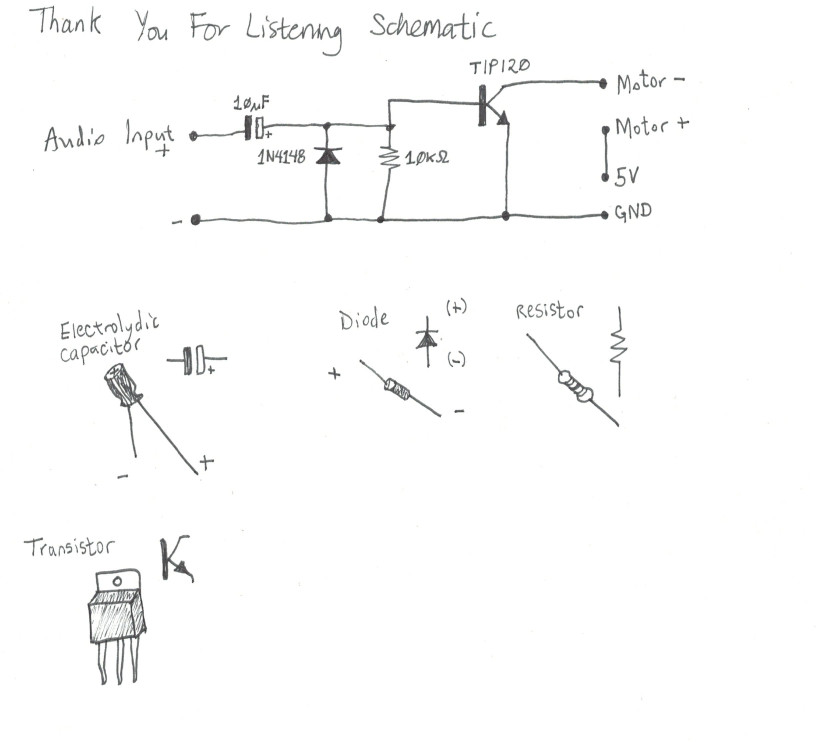 Thank You For Listening Schematic
TIP120
Motor -
10µF
Motor +
Audio Input
+
+
1N4148
10KΩ
5V
-
GND
Electrolydic
Capacitor
+
-
+
Diode
(+)
(-)
+
-
Resistor
Transistor